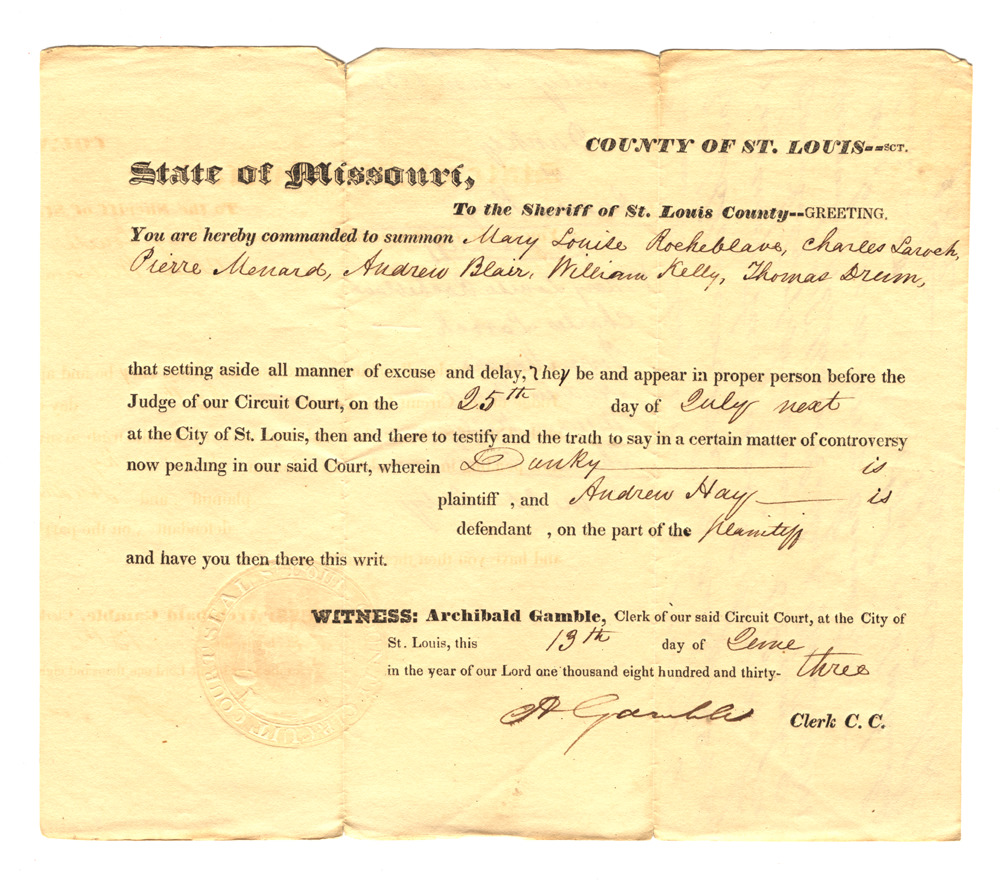 COUNTY OF ST. LOUIS--SCT.
State of Missouri,
To the Sheriff of St. Louis County--GREETING.
You are hereby commanded to summon Mary Louise Rocheblave, Charles Laroch,
Pierre Menard, Andrew Blair, William Kelly, Thomas Drum,
that setting aside all manner of excuse and delay, They be and appear in proper person before the
Judge of our Circuit Court, on the 25th day of July next
at the City of St. Louis, then and there to testify and the truth to say in a certain matter of controversy
now pending in our said Court, wherein Dunky is
plaintiff , and Andrew Hay is
defendant , on the part of the plaintiff
and have you then there this writ.
WITNESS: Archibald Gamble, Clerk of our said Circuit Court, at the City of
St. Louis, this 13th day of June
in the year of our Lord one thousand eight hundred and thirty- three
A. Gamble Clerk C. C.